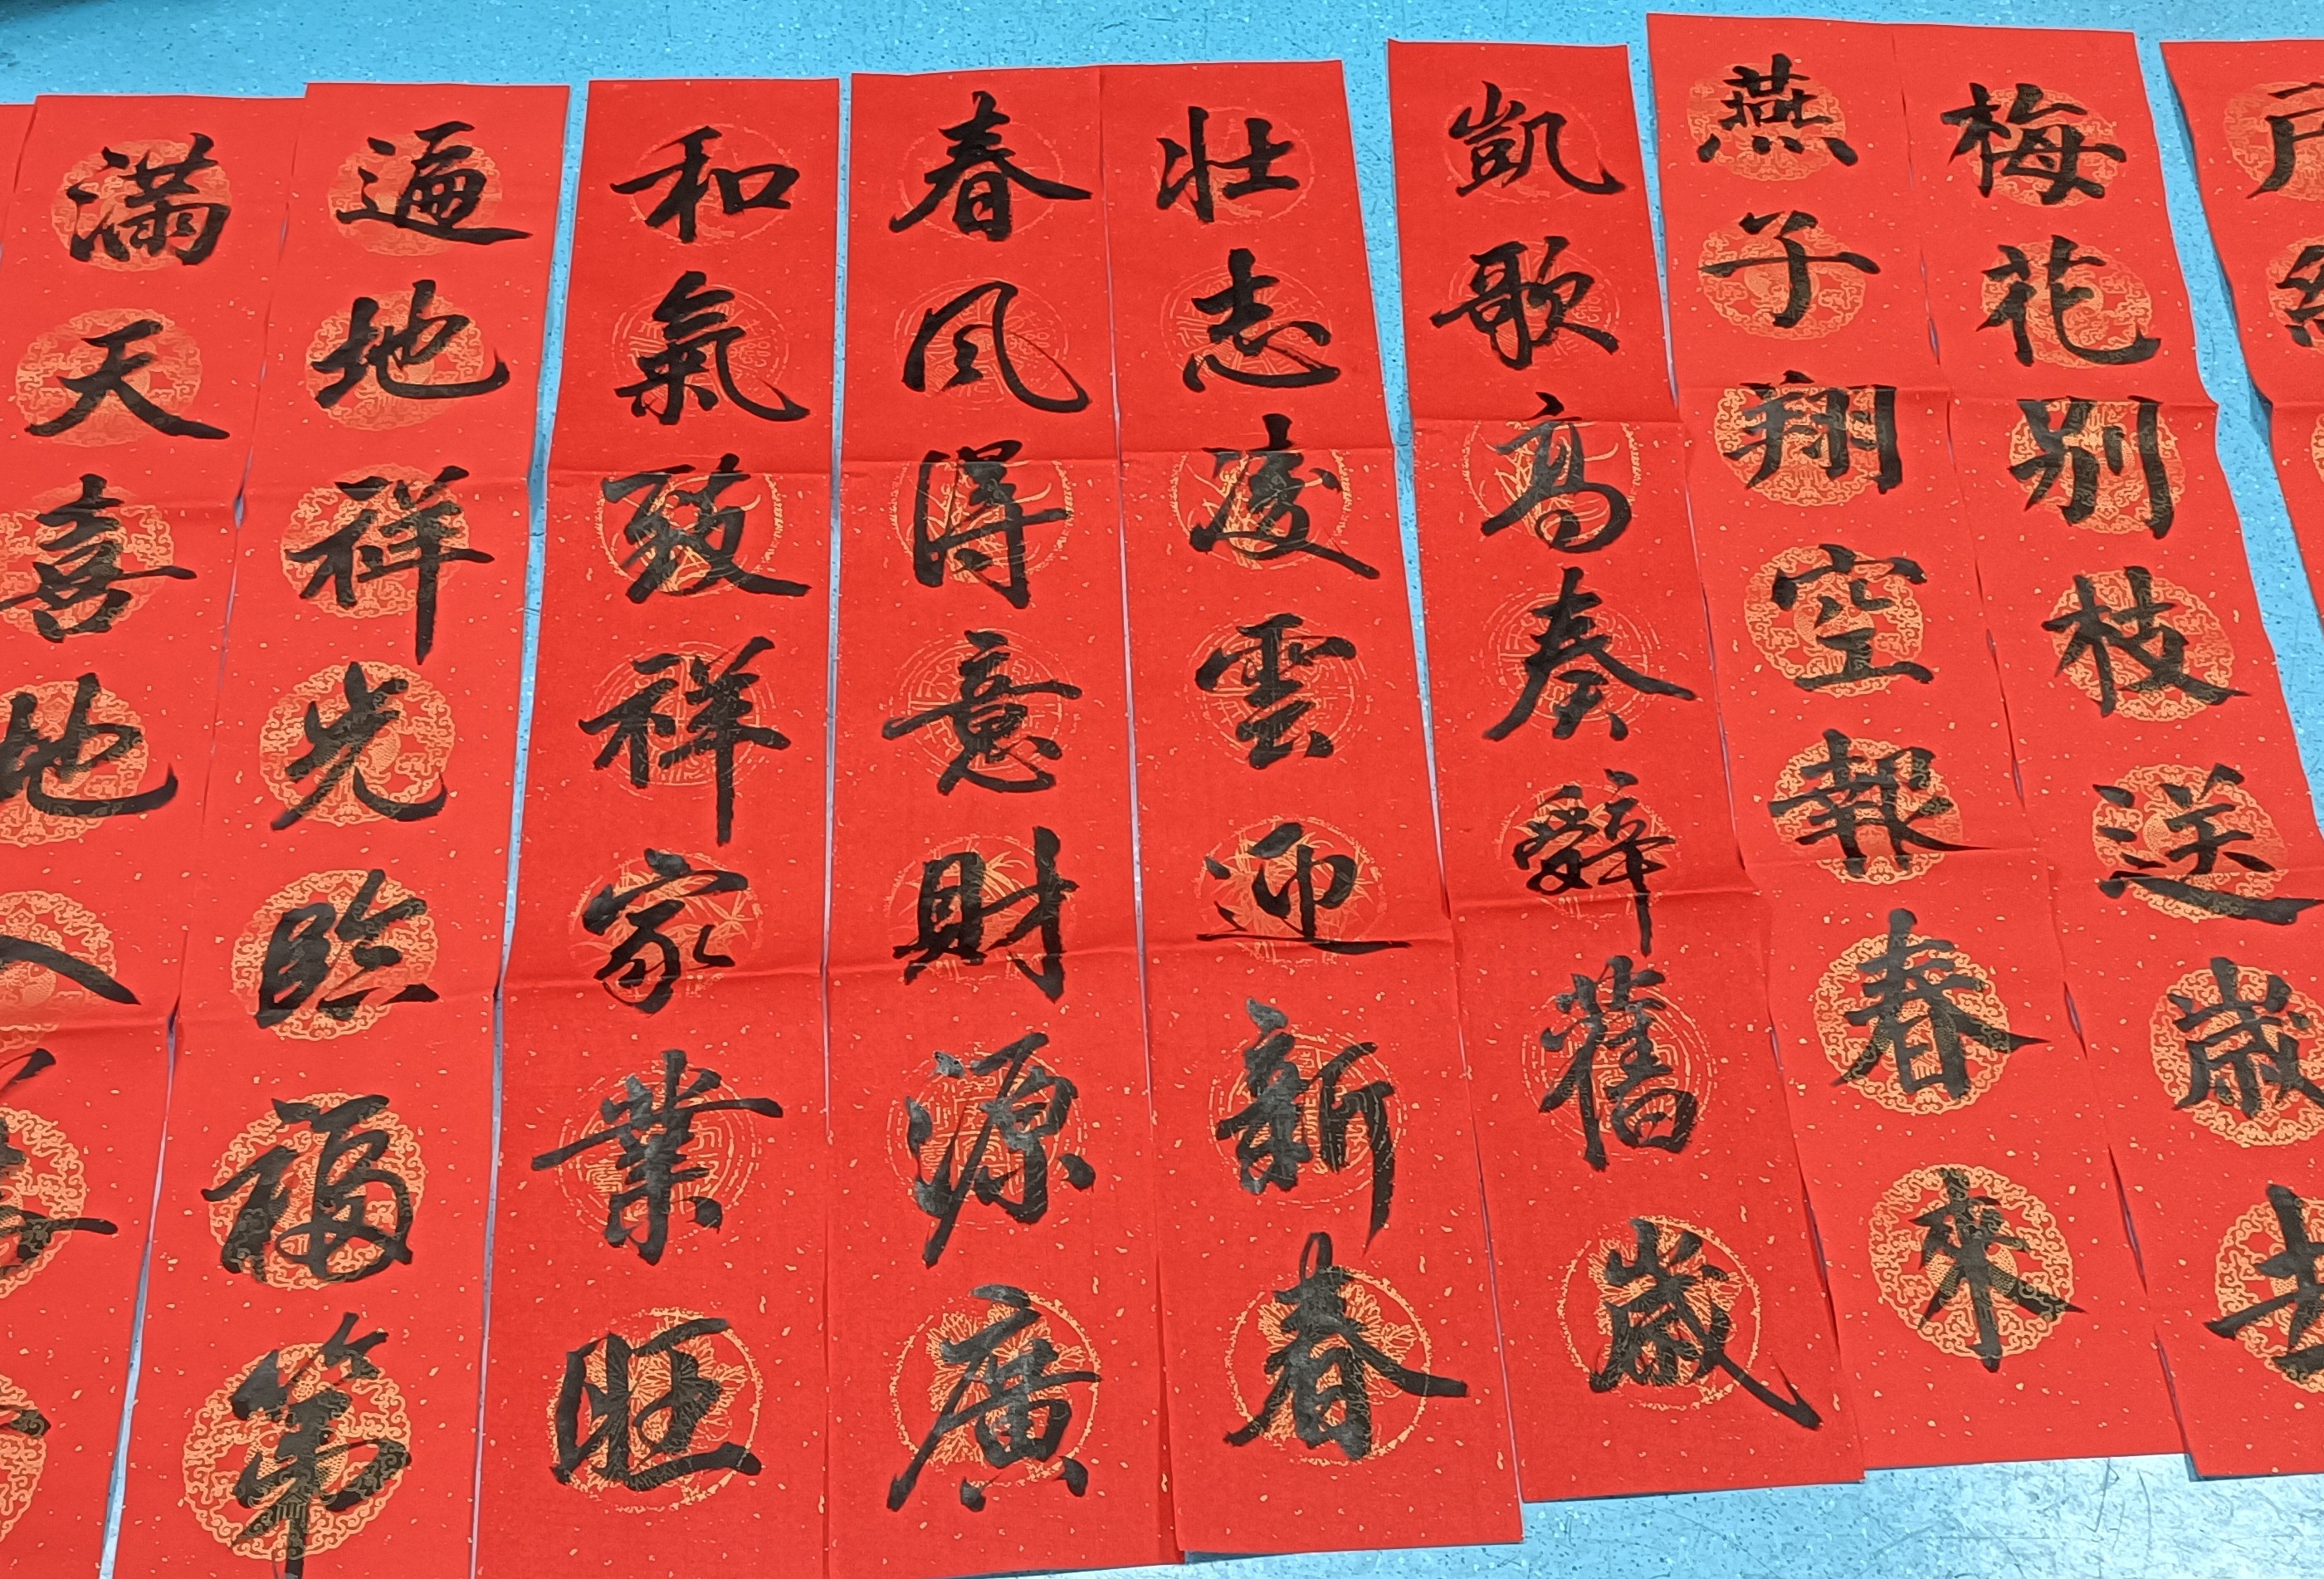 梅花别枝送歲去
燕子翔空報春來
凱歌高奏辭舊歲
壮志凌雲迎新春
春风得意財源廣
和氣致祥家業旺
遍地祥光臨福第
滿天喜地